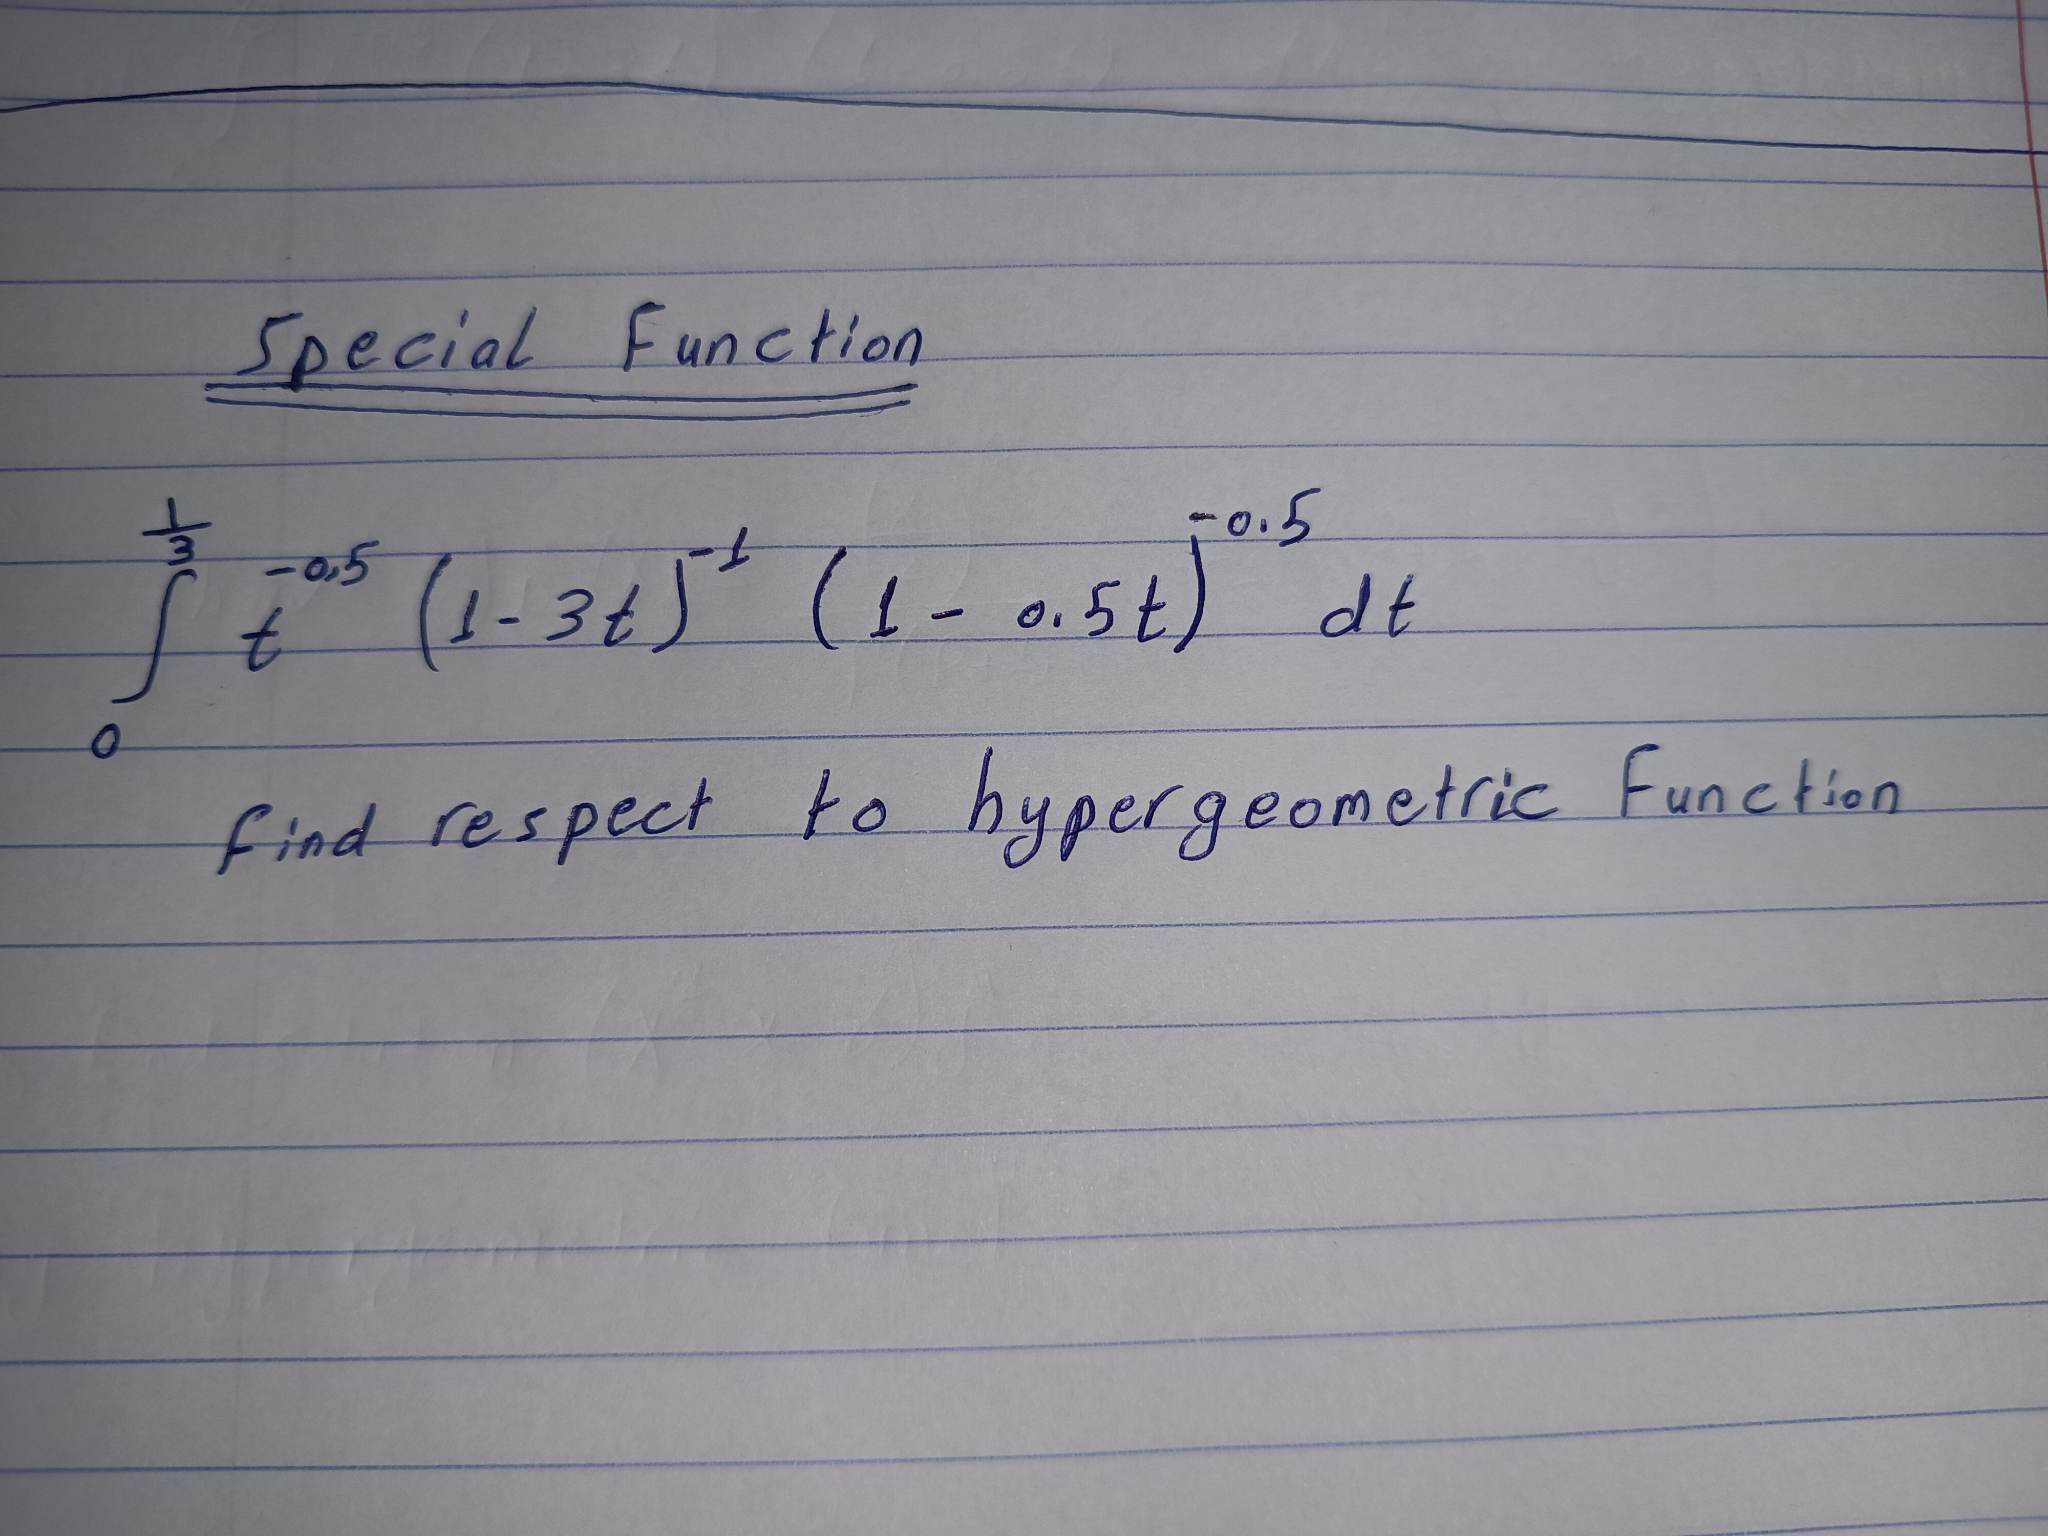 Special Function
∫₀^(1/3) t^(-0.5) (1-3t)^(-1) (1-0.5t)^(-0.5) dt
find respect to hypergeometric Function